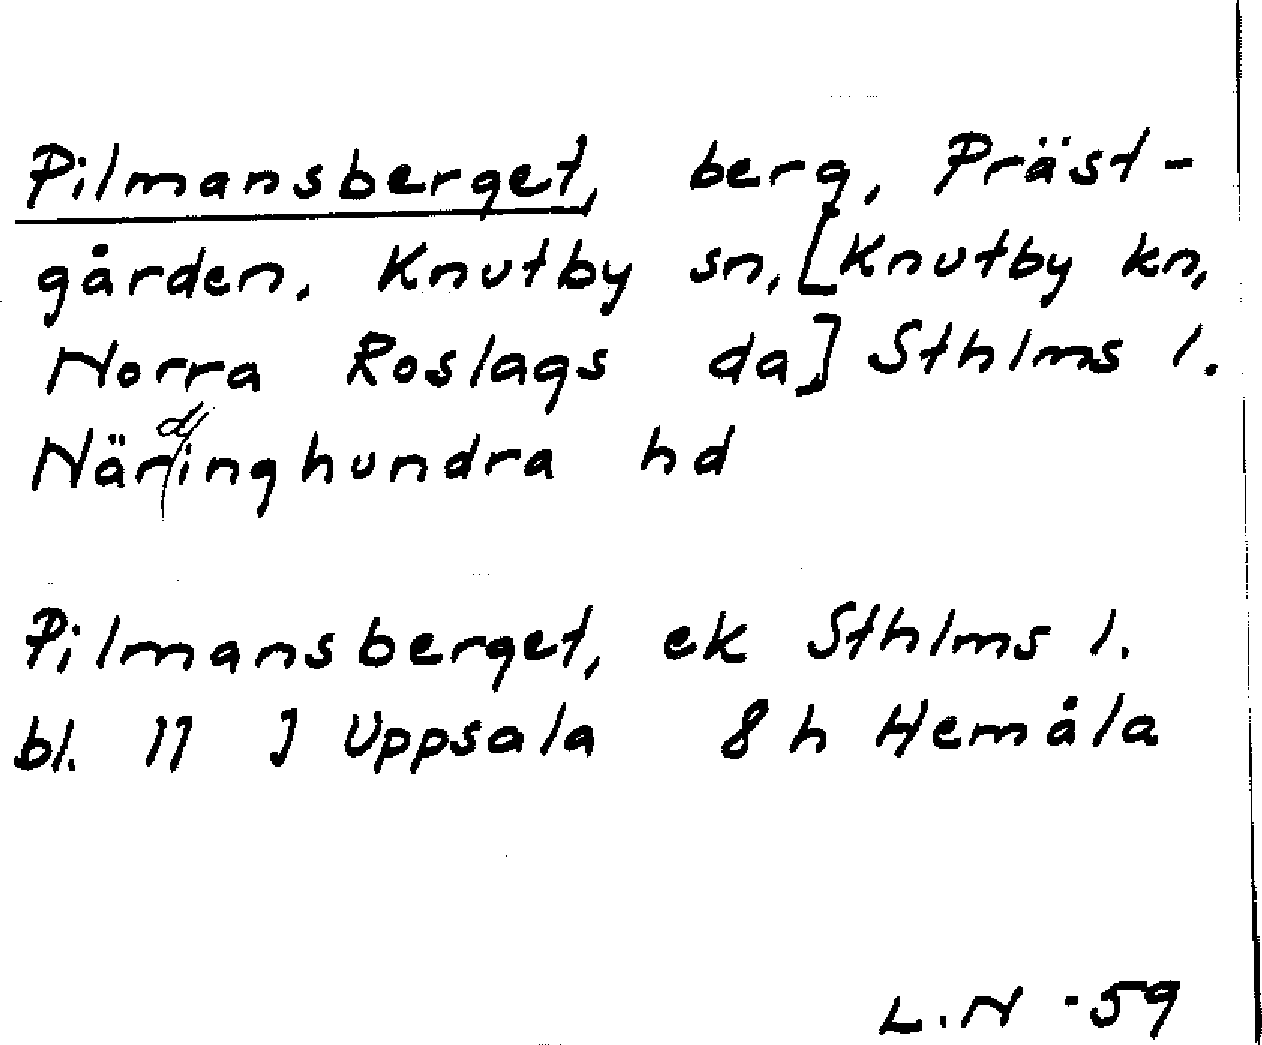 Pilmansberget, berg, Präst-
gården, Knutby sn, [Knutby kn,
Norra Roslags da] Sthlms l.
Närdinghundra hd
Pilmansberget, ek Sthlms l.
bl. 11 J Uppsala 8h Hemåla
L.N -59